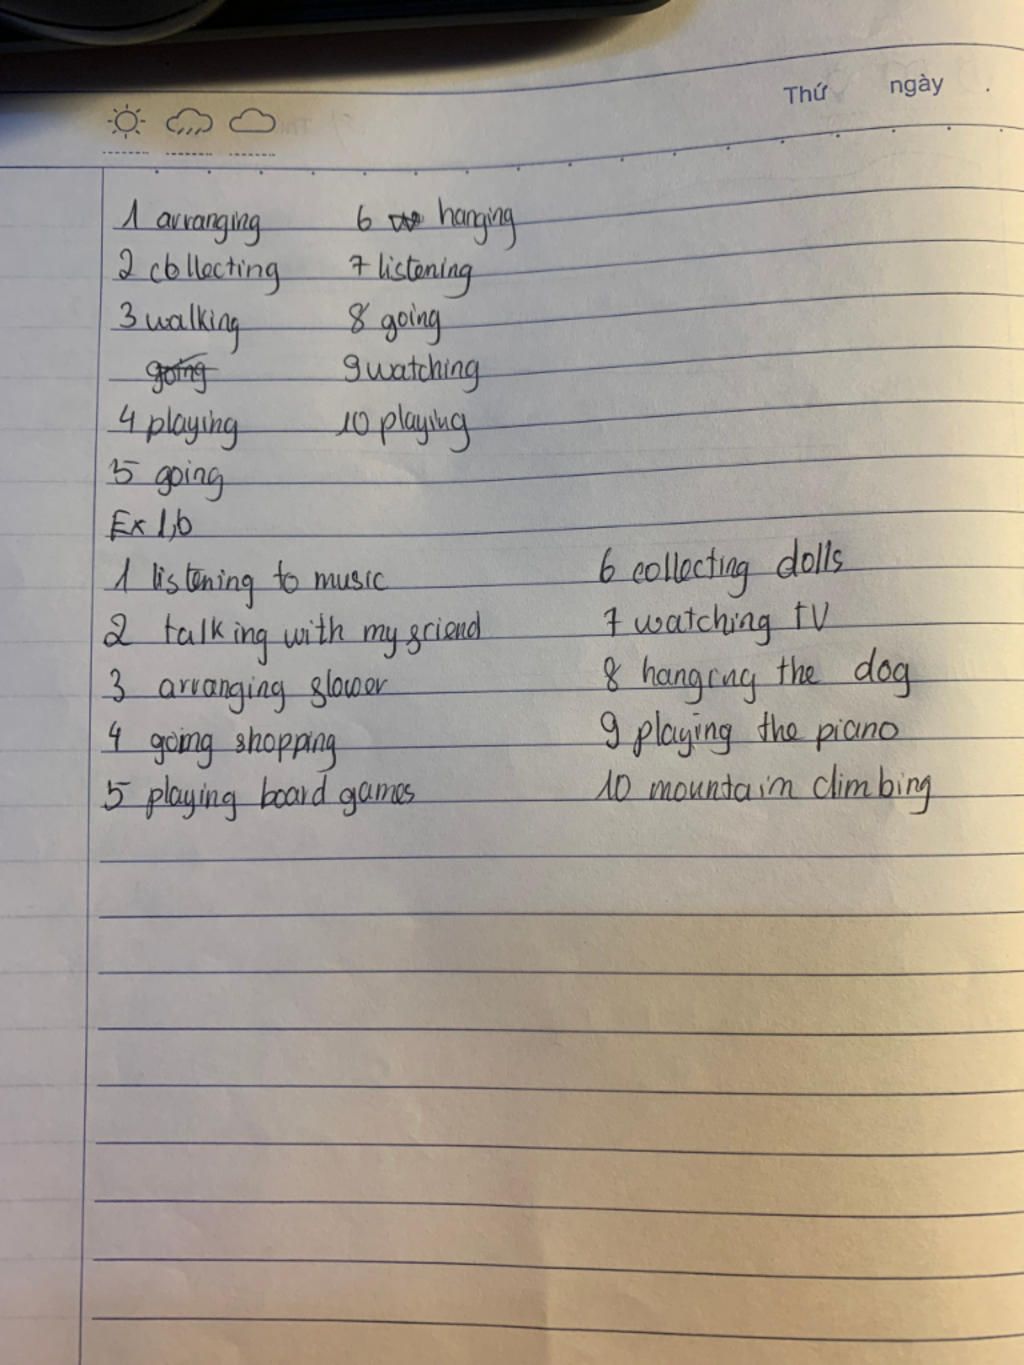 Thứ ngày .
1 arranging 6 hanging
2 collecting 7 listening
3 walking 8 going
going 9 watching
4 playing 10 playing
5 going
Ex 1,b
1 listening to music 6 collecting dolls
2 talking with my friend 7 watching TV
3 arranging flower 8 hanging the dog
4 going shopping 9 playing the piano
5 playing board games 10 mountain climbing